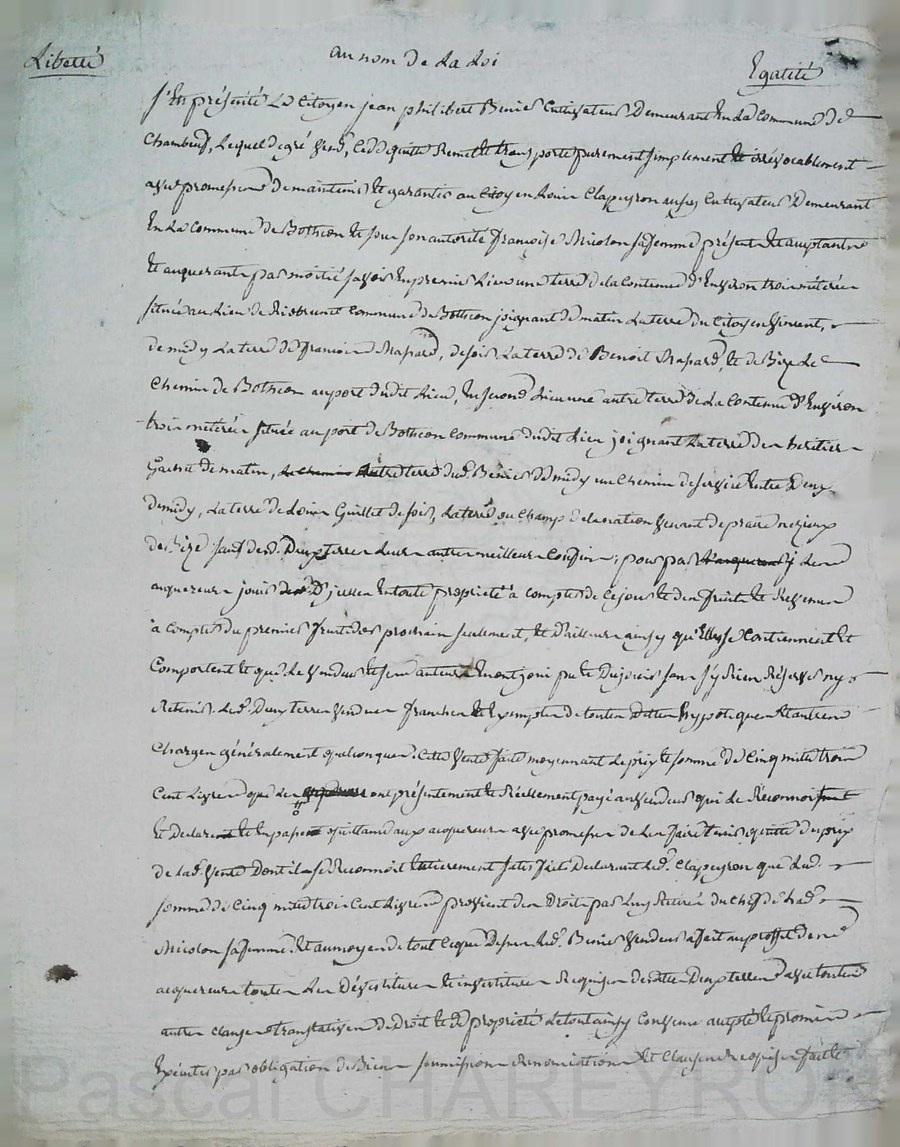 Liberté
au nom de La Loi
Egalité
S'Est présenté Le Citoyen jean philibert Benier Cultivateur Demeurant En La Commune De
Chambeuf, Lequel degré Vend, Cedde quitte Remet et transporte purement simplement et irrévocablement
avec promesse De maintenir et garantir au Citoyen Louis Clapeyron aussy Cultivateur Demeurant
En La Commune De Botheon et sur son autorité françoise Nicolon sa femme présent et acceptants
et acquerants par moitié savoir En premier Lieu une terre de la Contenue d'Environ trois métérée
située au Lieu de Commune de Botheon joignant de matin La terre du Citoyen Vincent,
de midy La terre de francois Chapard, de soir La terre de Benoit Chapard, et de Bize Le
Chemin de Botheon au port dudit Lieu, En second Lieu une autre terre de La Contenue d'Environ
trois métérée située au port de Botheon Commune dudit Lieu joignant La terre des heritiers
de matin, Le Chemin autre terre dud. Benier de midy un Chemin de service Entre Deux
de midy, La terre de Louis Guillet de soir, La terre ou Champ de la nation Venant de
de Bize sauf desd. Deux terres Leurs autres meilleurs Confins; pour par Les
acquereurs jouir Desd. D'jcelles En toute propriété à compter de Ce jour et des fruits et Revenus
à Compter du premier fruit des prochain seulement, et D'ailleurs ainsy qu'Elles se Contiennent et
Comportent et que Le Vendeur et ses auteurs En ont joui pu et Du jouir sans s'y Rien Réserver ny
Retenir. Lesd. Deux terres Vendues franches et Exemptes de toutes Dettes hypotheques et autres
Charges généralement quelconques. Cette Vente faite moyennant Le prix et somme de Cinq mille trois
Cent Livres que Les acquereurs ont présentement et Réellement payé au Vendeur qui Le Reconnoit
et Declare et En passe quittance aux acquereurs avec promesse de Les faire tenir quitte du prix
de lad. Vente Dont il se Reconnoit Entierement satisfait Declarant Led. Clapeyron que Lad.
somme de Cinq mille trois Cent Livres provient des Droits par Luy Retirés du Chef de Lad.
Nicolon sa femme. Et au moyen de tout Ce que Dessus Led. Benier Vendeur a fait au proffit des
acquereurs toutes Les Dévestitures et investitures Requises desdites Deux terres avec toutes
autres clauses translatives De Droit et de propriété Le tout ainsy Convenu accepté et promis
Exécuter par obligation de Biens soumissions Renonciations et Clauses Requises fait et
Pascal CHAREYRON